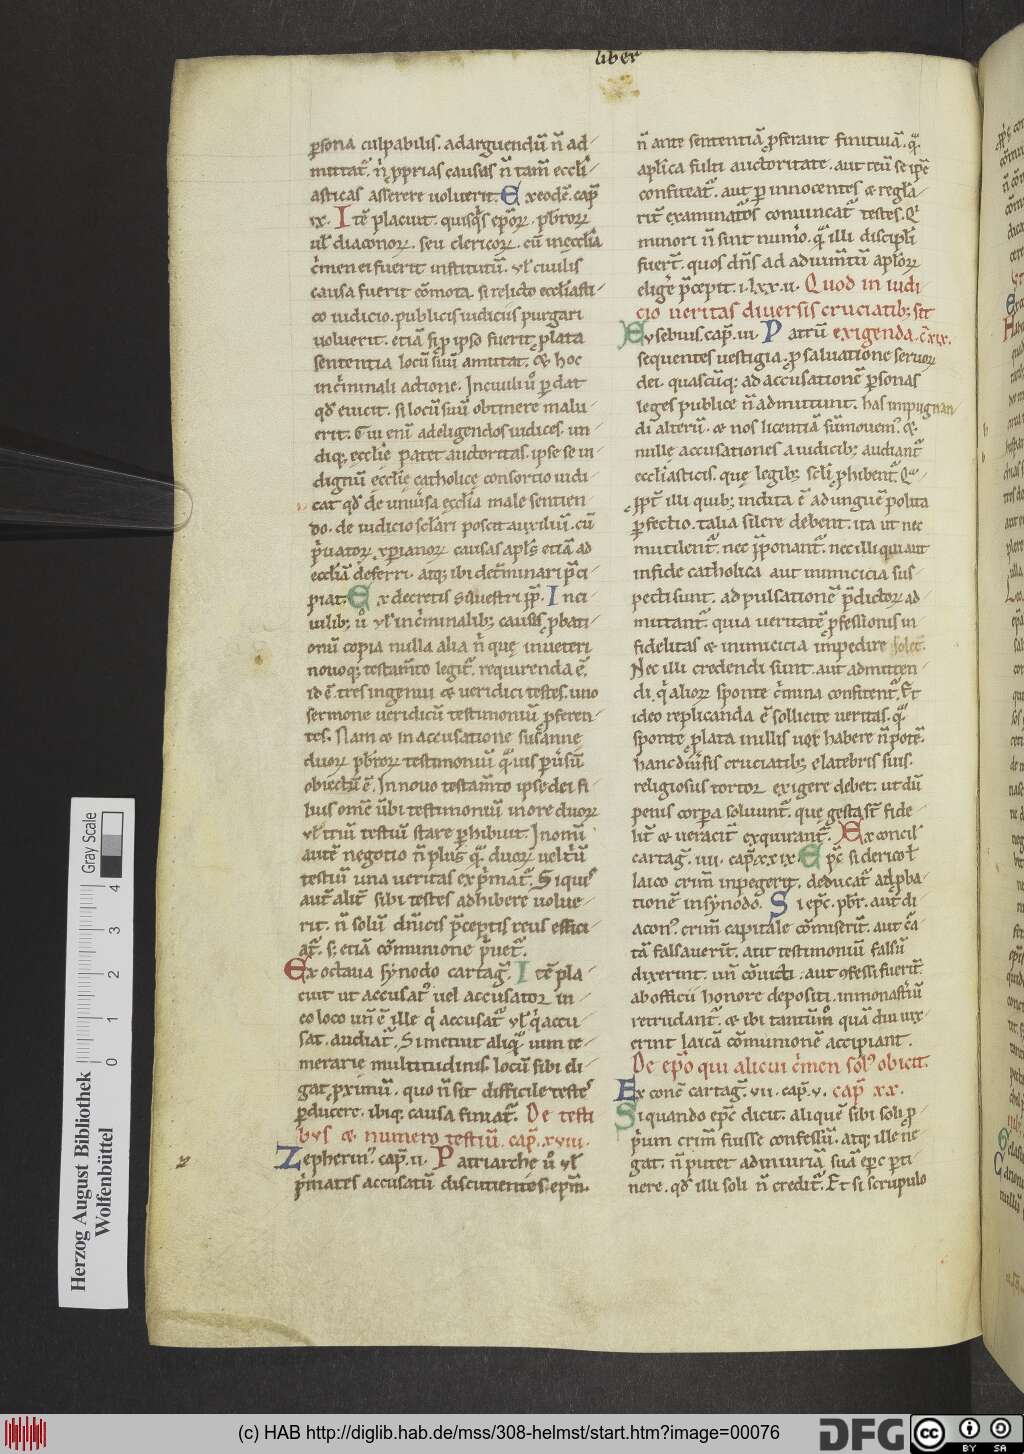 liber
ꝑsona culpabilis. ad arguendū n̄ ad-
mittat᷑. n̄ ꝓprias causas n̄ tam̄ eccłi-
asticas asserere uoluerit. Ex eodē. cap̄
ix. Itē placuit. quisq̓s ep̄oꝝ. pb̄roꝝ
uł diaconoꝝ. seu clericoꝝ. cū in ecclīa
c̓men ei fuerit institutū. uł ciuilis
causa fuerit cōmota. si relicto eccłiasti-
co iudicio. publicis iudiciis purgari
uoluerit. etiā si ꝓ ipso fuerit ꝓlata
sententia locū suū amittat. & hoc
in c̓minali actione. In ciuili ů ꝑdat
qd̄ euicit. si locū suū obtinere malu-
erit. Cui enī ad eligendos iudices. un-
diq; ecclīe patet auctoritas. ipse se in-
dignū ecclīe catholicę consortio iudi-
cat qd̄ de uniũsa ecclīa male sentien-
do. de iudicio sclari poscit auxiliū. cū
p̓uatoꝝ xp̄ianoꝝ causas apłs etiā ad
ecclīā deferri. atq; ibi det̄minari p̄ci-
piat. Ex decretis Siluestri pp̄. In ci-
uilib; ů uł in c̓minalib; causis ꝓbati-
onū copia nulla alia n̓ quę in ueteri
nouoq; testam̄to legit᷑. requirenda ē.
id ē. tres ingenui & ueridici testes. uno
sermone ueridicū testimoniū ꝓferen-
tes. Nam & in accusatione susanne
duoꝝ pb̄roꝝ testimoniū q̄uis ꝑuısū
obiectū ē. In nouo testam̄to ipse dei fi-
lius om̄e ūbi testimoniū in ore duoꝝ
uł triū testiū stare ꝑhibuit. In omi
autē negotio n̄ plus q̄ duoꝝ uel t̓ū
testiū una ueritas exp̓mat᷑. Si quis
aut̄ alit̄ sibi testes adhibere uolue-
rit. n̄ solū diuīcis p̄ceptis reus effici-
at᷑. s; etiā cōmunione p̓uet᷑.
Ex octaua synodo cartag᷑. Itē pla-
cuit ut accusat᷒ uel accusator in
eo loco un̄ ē ille q̓ accusat᷑ uł q̓ accu-
sat. audiat᷑. Si metuit aliq̄ uim te-
merarie multitudinis. locū sibi di-
gat ꝓximū. quo n̄ sit difficile testes
ꝑducere. ibiq; causa finiat᷑. De testi
bus & numero testiū. cap̄. xviii.
Zepherin᷒. cap̄. ii. Patriarche ů uł
p̓mates accusatū discutientes ep̄m.
n̄ ante sententiā ꝓferant finitiuā. q̄
aplīca fulti auctoritate. aut reū se ipē
confiteat᷑. aut ꝑ innocentes & regla-
rit᷑ examinatos conuincat᷑ testes. Q̓
minori n̄ sint num̄o. q̄ illi discipli
fuert̄. quos dn̄s ad adiuuītū aploꝝ
elig̓e p̄cepit. i. lxx. ii. Quod in iudi
cio ueritas diuersis cruciatib; sit
Eusebius. cap̄. iii. Patrū exigenda. c̄ xix.
sequentes uestigia. ꝓ saluatione seruoꝝ
dei. quascūq; ad accusationē ꝑsonas
leges publice n̄ admittunt. has impugnan
di alterū. & nos licentiā sūmouem᷒. &
nulle accusationes a iudicib; audiant᷑
eccłiasticis. quę legib; scłi ꝓhibent᷑. Qa
ꝓpt̄ illi quib; indita ē ad unguē polita
ꝑfectio. talia silere debent. ita ut nec
mutilent᷑. nec p̄ponant᷑. nec illi qui aut
in fide catholica aut inimicicia sus-
pecti sunt. ad pulsationē p̄dictoꝝ ad-
mittant᷑. quia ueritatē ꝓfessionis in-
fidelitas & inimicicia impedire solet.
Nec illi credendi sunt. aut admitten-
di. q̓ alioꝝ sponte c̓mina confitent᷑. Et
ideo replicanda ē sollicite ueritas. q̄
sponte ꝓlata in illis uox habere n̄ potē.
hanc diũsis cruciatib; e latebris suis.
religiosus tortor exigere debet. ut dū
penis corpora soluunt᷑. que gesta st̄ fide-
lit̄ & ueracit̄ exquirant᷑. Ex concil
cartag̃. iiii. cap̄. xxix. Ep̄c si clerico uł
laico crim̄ inpegerit. deducat᷑ ad ꝓba-
tionē in synodo. Si ep̄c. pb̄r. aut di
acon᷒. crim̄ capitale cōmiserit. aut c̄a
tā falsauerit. aut testimoniū falsū
dixerint. un̄ cōuicti. aut ꝯfessi fuerit̄.
ab officii honore depositi. in monasťiū
retrudant᷑. & ibi tantum̊ quā diu uix-
erint laicā cōmunionē accipiant.
De ep̄o qui alicui c̓men sol᷒ obicit.
Ex cone cartag̃. vii. cap̄. v. cap̄ xx.
Si quando ep̄c dicit. aliquē sibi soli ꝓ-
p̓um crim̄ fuisse confessū. atq; ille ne-
gat. n̄ putet ad iniuriā suā ep̄c ꝑti-
nere. qd̄ illi soli n̄ credit᷑. Et si scrupulo
Herzog August Bibliothek
Wolfenbüttel
Gray Scale
0 1 2 3 4
(c) HAB http://diglib.hab.de/mss/308-helmst/start.htm?image=00076
DFG
cc BY SA